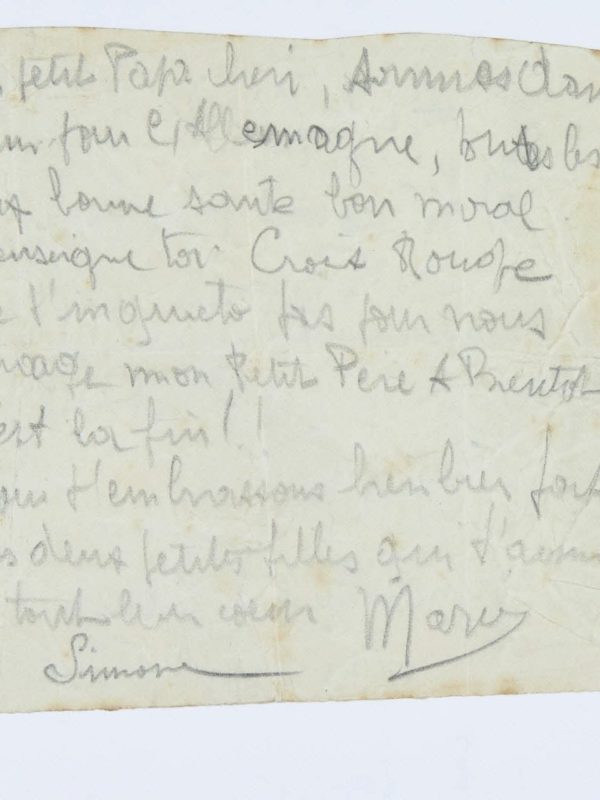 petit Papa cheri, sommes dan
pour l'Allemagne, toutes les
bonne sante bon moral
enseigne toi Croix Rouge
t'inquieto pas pour nous
mon Petit Pere A Bientot
est la fin!!
t'embrassons bien bien fort
deux petites filles qui t'aime
tout leur coeur Marie
Simone